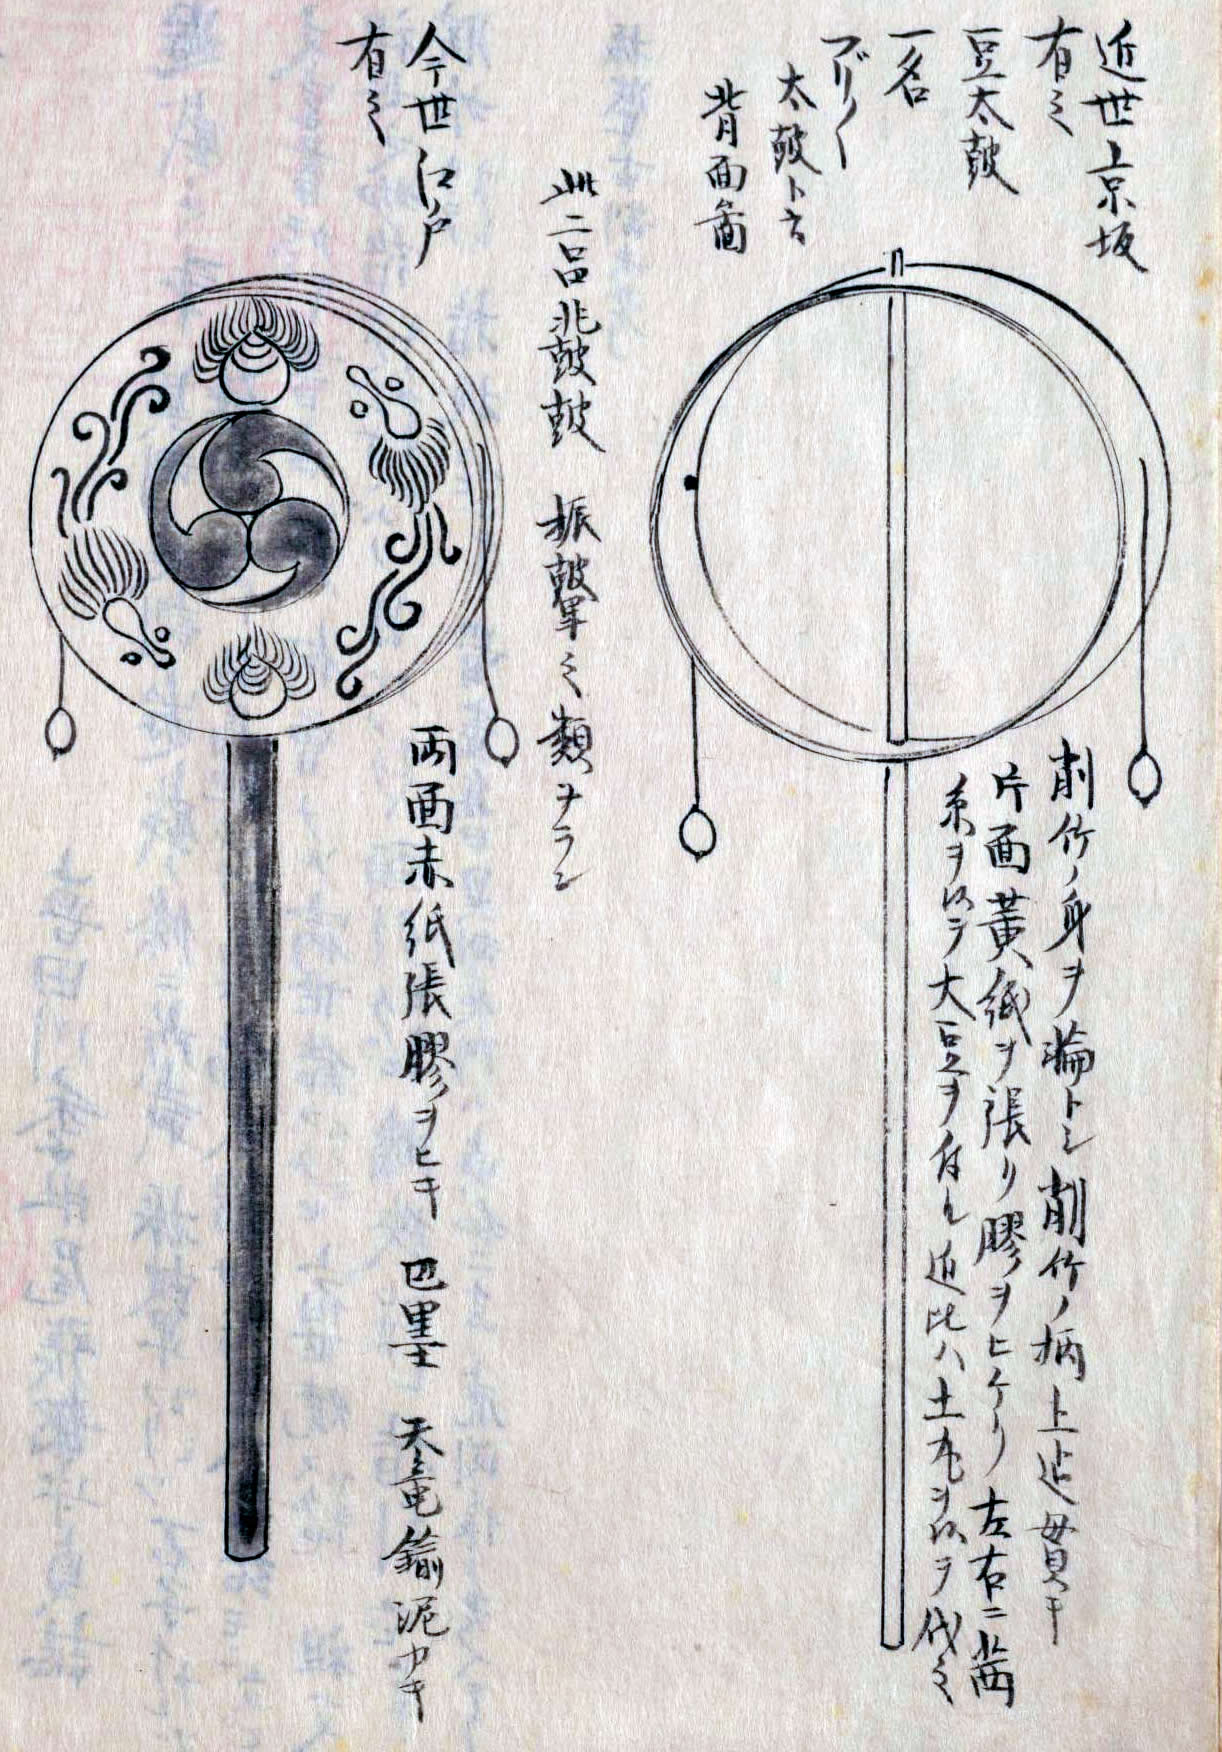 近世京坂
有之
豆太鼓
一名
ブリ〱
太鼓ト云
背面図
削竹ノ身ヲ輪トシ 削竹ノ柄上迄貫キ
片面黄紙ヲ張リ膠ヲヒケリ 左右ニ茜
糸ヲ以テ大豆ヲ付ル 近比ハ土丸ヲ以テ代之
此二品兆鼓鼓 振鼙之類ナラン
今世江戸
有之
両面赤紙張膠ヲヒキ 巴墨 天竜鍮泥カキ